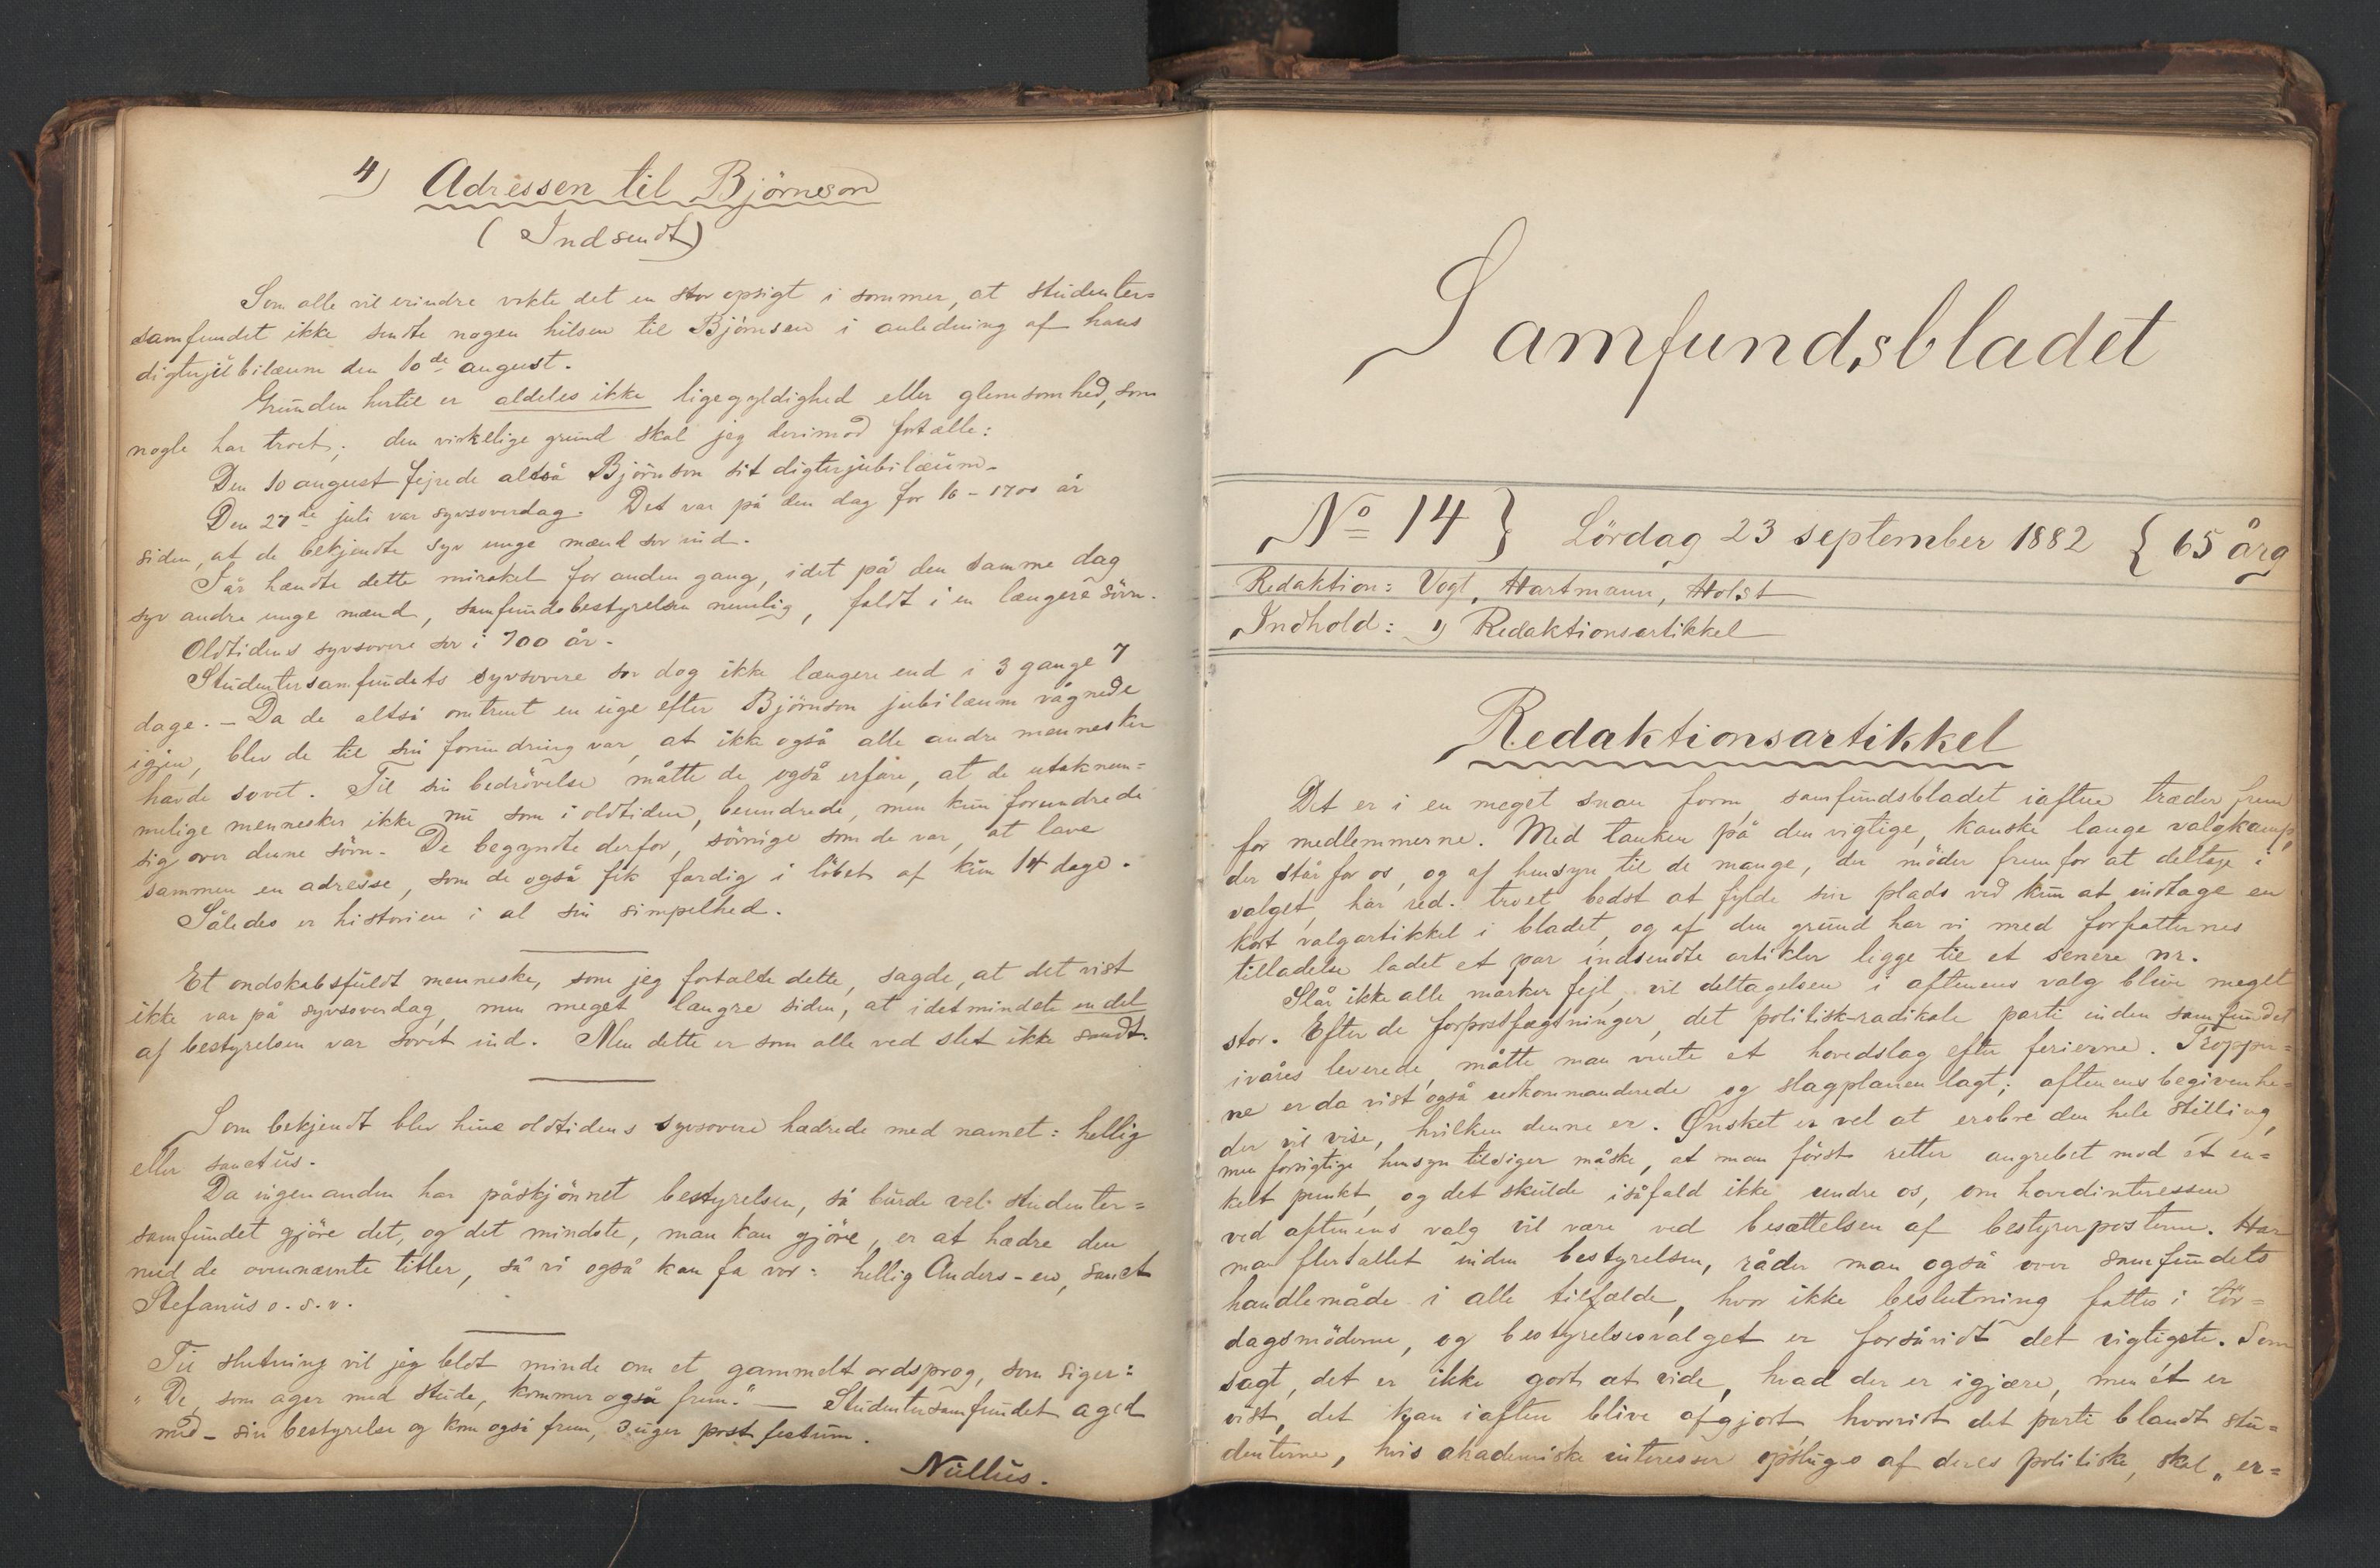 4) Adressen til Björnson
(Indsendt)
Som alle vil erindre vakte det en stor opsigt i sommer, at studenter=
samfundet ikke sendte nogen hilsen til Björnsen i anledning af hans
digterjubilæum den 10de august.
Grunden hertil er aldeles ikke ligegyldighed eller glemsomhed, som
nogle har troet; den virkelige grund skal jeg derimod fortælle:
Den 10 august fejrede altså Björnson sit digterjubilæum.
Den 27de juli var syvsoverdag. Det var på den dag for 16-1700 år
siden, at de bekjendte syv unge mænd sov ind.
I år hændte dette mirakel for anden gang, idet på den samme dag
syv andre unge mænd, samfundsbestyrelsen nemlig, faldt i en længere sövn.
Oldtidens syvsovere sov i 700 år.
Studentersamfundets syvsovere sov dog ikke længere end i 3 gange 7
dage. – Da de altså omtrent en uge efter Björnson jubilæum vågnede
igjen, blev de til sin forundring var, at ikke også alle andre mennesker
havde sovet. Til sin bedrövelse måtte de også erfare, at de utaknem=
melige mennesker ikke nu som i oldtiden, beundrede, men kun forundrede
sig over denne sövn. De begyndte derfor, sövnige som de var, at lave
sammen en adresse, som de også fik færdig i löbet af kun 14 dage.
Således er historien i al sin simpelhed.
Et ondskabsfuldt menneske, som jeg fortalte dette, sagde, at det vist
ikke var på syvsoverdag, men meget længre siden, at idetmindste en del
af bestyrelsen var sovet ind. Men dette er som alle ved slet ikke sandt.
Som bekjendt blev hine oldtidens syvsovere hædrede med navnet: hellig
eller sanctus.
Da ingen anden har påskjönnet bestyrelsen, så burde vel studenter=
samfundet gjöre det, og det mindste, man kan gjöre, er at hædre den
med de ovennævnte titler, så vi også kan få vor: hellig Anders-en, sanct
Stefanus o.s.v.
Til slutning vil jeg blot minde om et gammelt ordsprog, som siger:
"De, som ager med stude, kommer også frem." — Studentersamfundet aged
med – sin bestyrelse og kom også frem, 3 uger post festum.
Nullus.
Samfundsbladet
No 14 } Lördag 23 september 1882 { 65 årg
Redaktion: Vogt, Hartmann, Holst
Indhold: 1) Redaktionsartikkel
Redaktionsartikkel
Det er i en meget snau form, samfundsbladet iaften træder frem
for medlemmerne. Med tanken på den vigtige, kanske lange valgkamp,
der står for os, og af hensyn til de mange, der möder frem for at deltage i
valget, har red. troet bedst at fylde sin plads ved kun at indtage en
kort valgartikkel i bladet, og af den grund har vi med forfatternes
tilladelse ladet et par indsendte artikler ligge til et senere nr.
Slår ikke alle mærker fejl, vil deltagelsen i aftenens valg blive meget
stor. Efter de forpostfægtninger, det politisk-radikale parti inden samfundet
ivåres leverede, måtte man vente et hovedslag efter ferierne. Tropper=
ne er da vist også udkommanderede og slagplanen lagt; aftenens begivenhe=
der vil vise, hvilken denne er. Ønsket er vel at erobre den hele stilling,
men forsigtige hensyn tilsiger måske, at man först retter angrebet mod ét en=
kelt punkt, og det skulde isåfald ikke undre os, om hovedinteressen
ved aftenens valg vil være ved besættelsen af bestyrerposterne. Har
man flertallet inden bestyrelsen, råder man også over samfundets
handlemåde i alle tilfælde, hvor ikke beslutning fattes i lör=
dagsmöderne, og bestyrelsesvalget er forsåvidt det vigtigste. Som
sagt, det er ikke godt at vide, hvad der er igjære, men ét er
vist, det kan iaften blive afgjort, hvorvidt det parti blandt stu=
denterne, hvis akademiske interesser opsluges af deres politiske, skal "er=